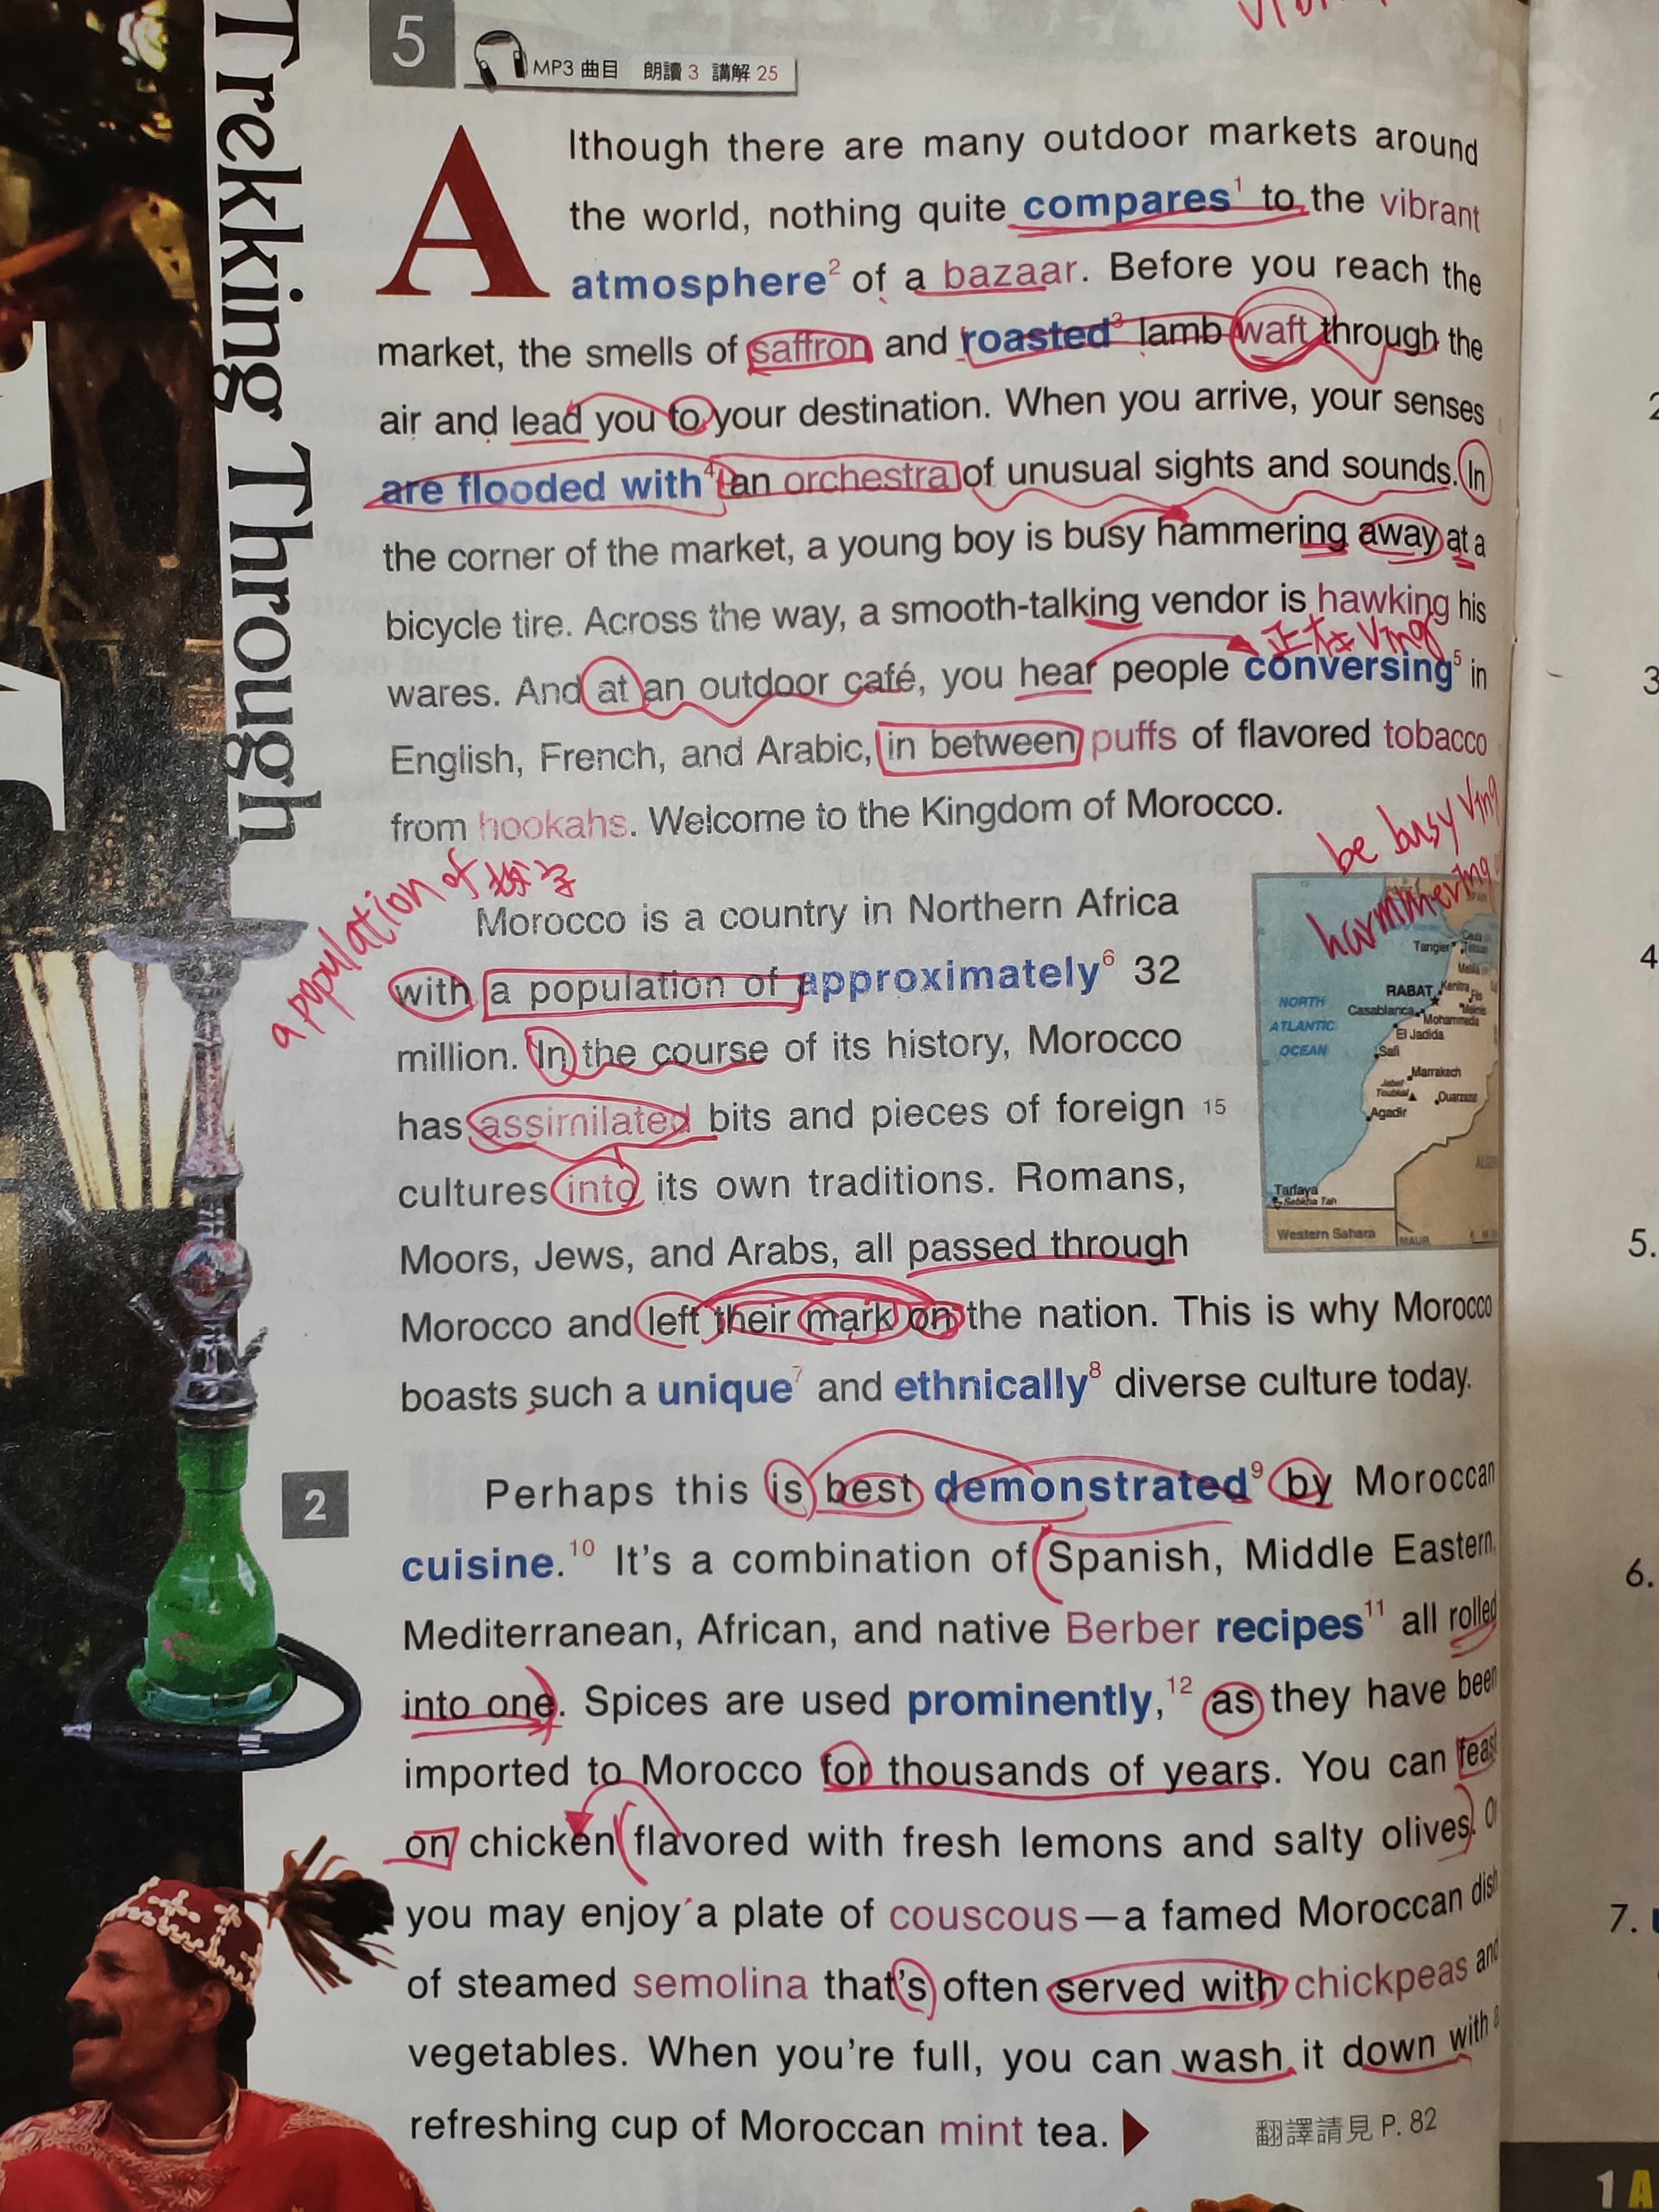 Trekking Through
5
MP3 曲目 朗讀 3 講解 25
Although there are many outdoor markets around
the world, nothing quite compares1 to the vibrant
atmosphere2 of a bazaar. Before you reach the
market, the smells of saffron and roasted3 lamb waft through the
air and lead you to your destination. When you arrive, your senses
are flooded with4 an orchestra of unusual sights and sounds. In
the corner of the market, a young boy is busy hammering away at a
bicycle tire. Across the way, a smooth-talking vendor is hawking his
正在 Ving
wares. And at an outdoor café, you hear people conversing5 in
English, French, and Arabic, in between puffs of flavored tobacco
from hookahs. Welcome to the Kingdom of Morocco.
be busy Ving
hammering
a population of 数字
Morocco is a country in Northern Africa
with a population of approximately6 32
million. In the course of its history, Morocco
has assimilated bits and pieces of foreign 15
cultures into its own traditions. Romans,
Moors, Jews, and Arabs, all passed through
Morocco and left their mark on the nation. This is why Morocco
boasts such a unique7 and ethnically8 diverse culture today.
NORTH
ATLANTIC
OCEAN
Tangier
RABAT
Kenitra
Casablanca
Mohammedia
El Jadida
Safi
Marrakech
Jebel
Toubkal
Ouarzazat
Agadir
Tarfaya
Sebkha Tah
Western Sahara
MAUR.
2
Perhaps this is best demonstrated9 by Moroccan
cuisine.10 It's a combination of Spanish, Middle Eastern,
Mediterranean, African, and native Berber recipes11 all rolled
into one. Spices are used prominently,12 as they have been
imported to Morocco for thousands of years. You can feast
on chicken flavored with fresh lemons and salty olives. O
you may enjoy a plate of couscous—a famed Moroccan dish
of steamed semolina that's often served with chickpeas and
vegetables. When you're full, you can wash it down with a
refreshing cup of Moroccan mint tea.
翻譯請見 P. 82
2
3
4
5.
6.
7.
1 A